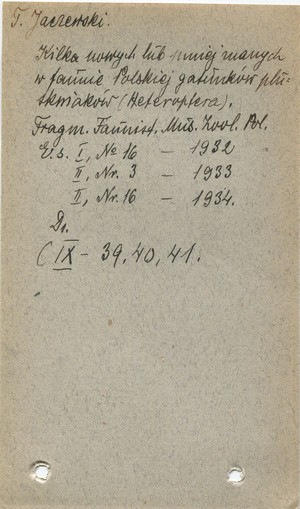 T. Jaczewski.
Kilka nowych lub mniej znanych
w faunie Polskiej gatunków plu=
skwiaków (Heteroptera).
Fragm. Faunist. Mus. Zool. Pol.
I, № 16 – 1932
II, Nr. 3 – 1933
II, Nr. 16 – 1934.
(IX – 39, 40, 41.